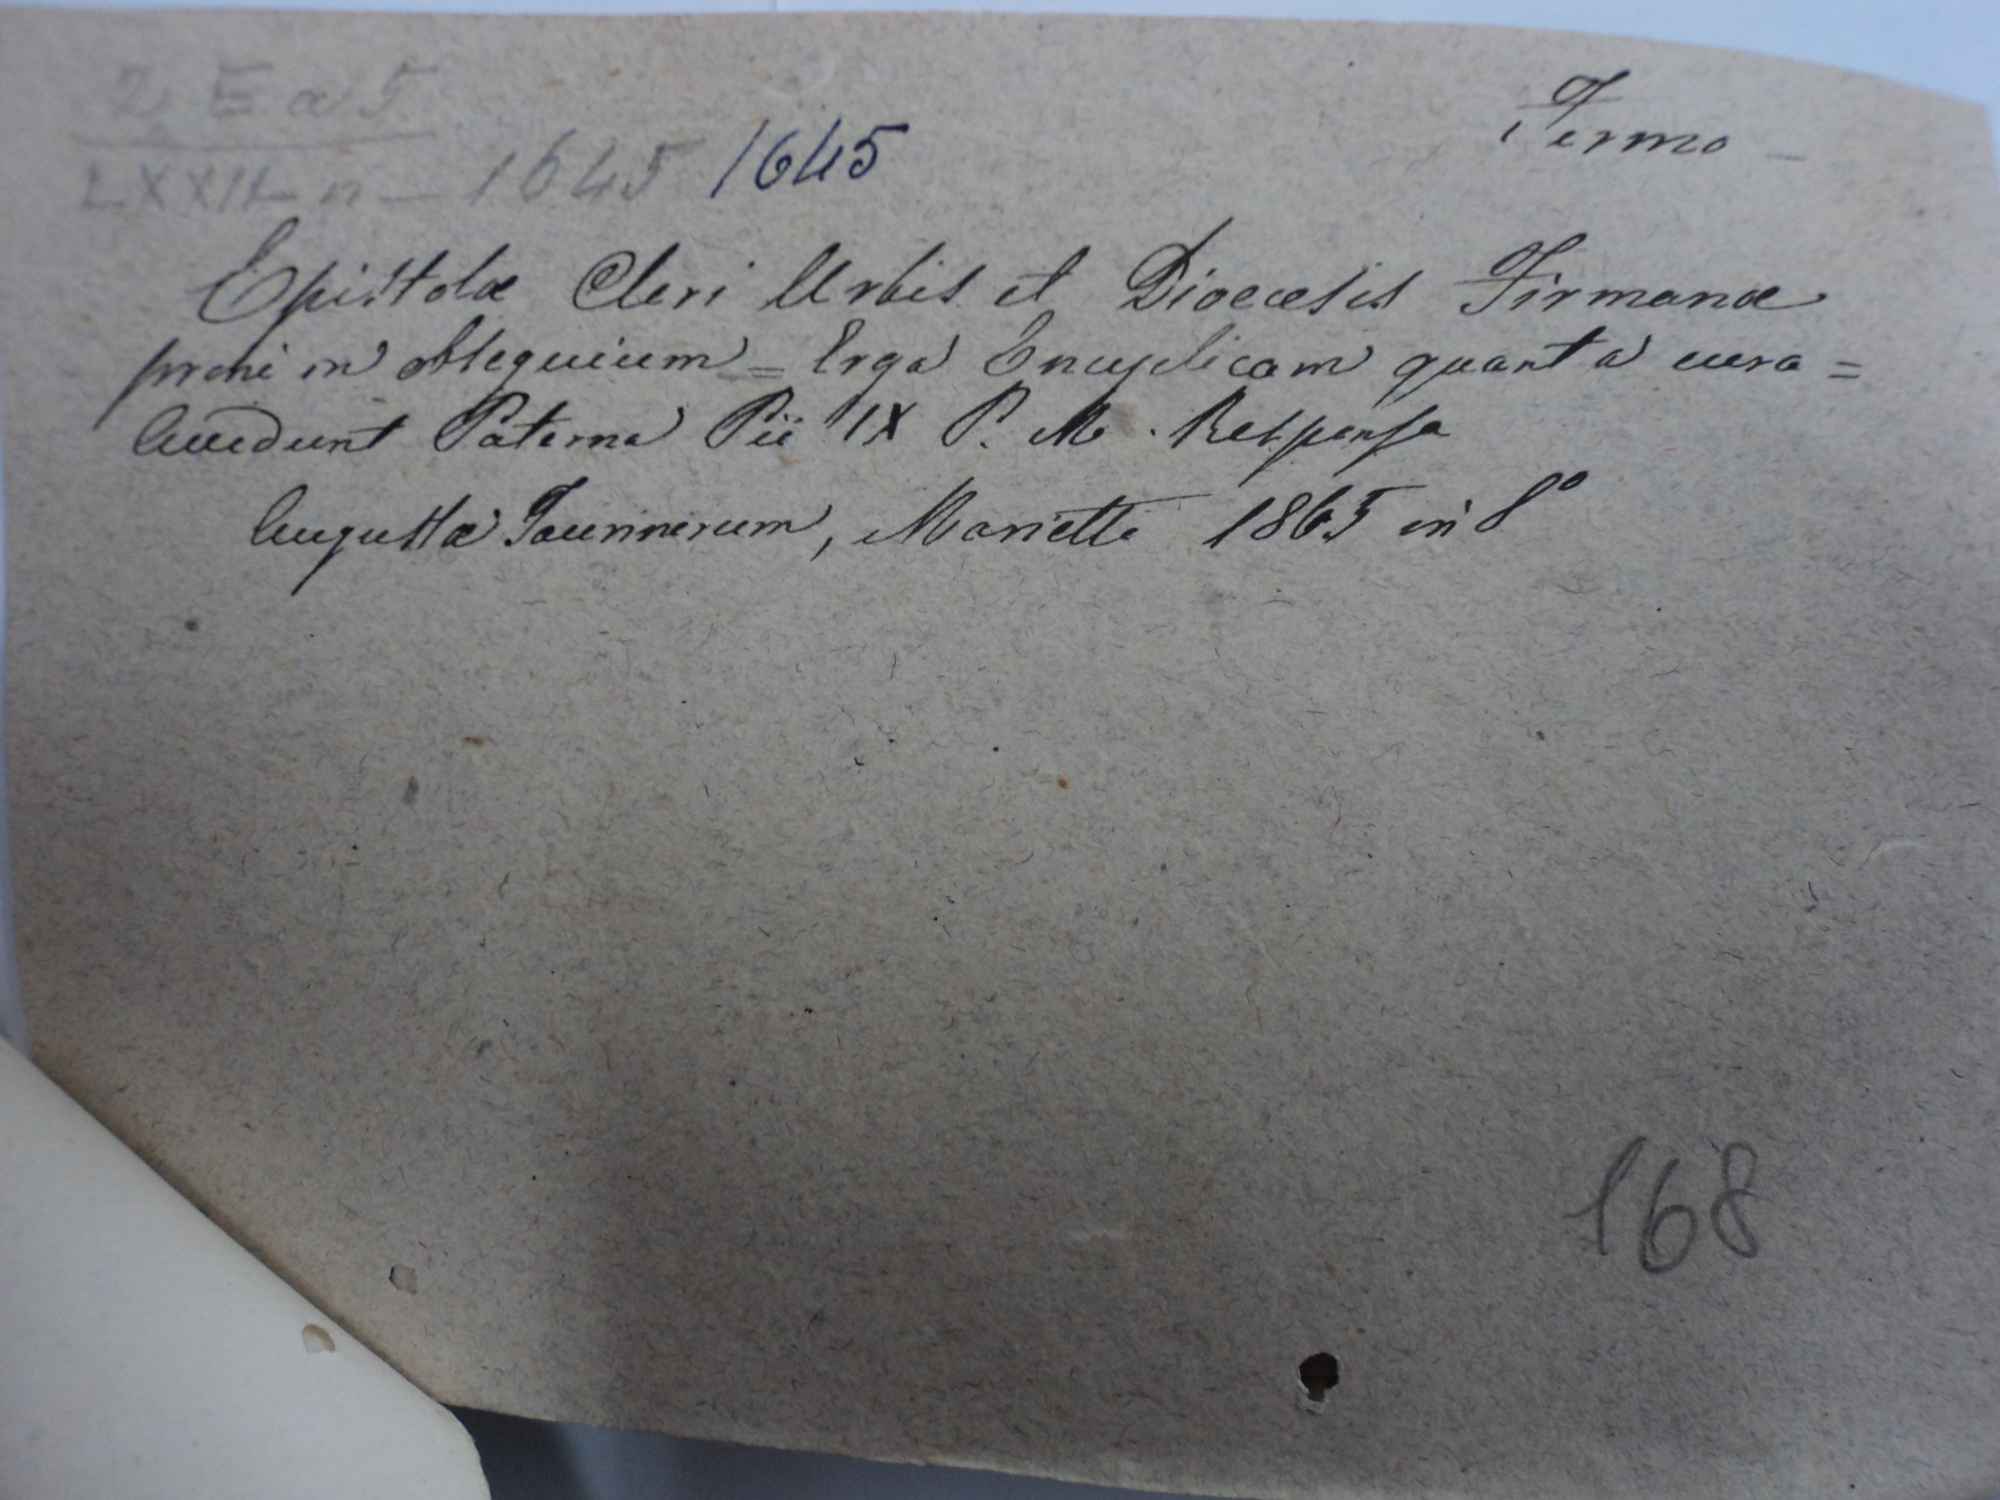 2 E a 5
LXXII n - 1645 1645
Fermo -
Epistolæ Cleri Urbis et Dioecesis Firmanæ
proni in obsequium = Erga Encyclicam quanta cura =
Accedunt Paterna Pii IX P. M. Responsa
Augustæ Taurinorum, Marietti 1865 in 8°
168